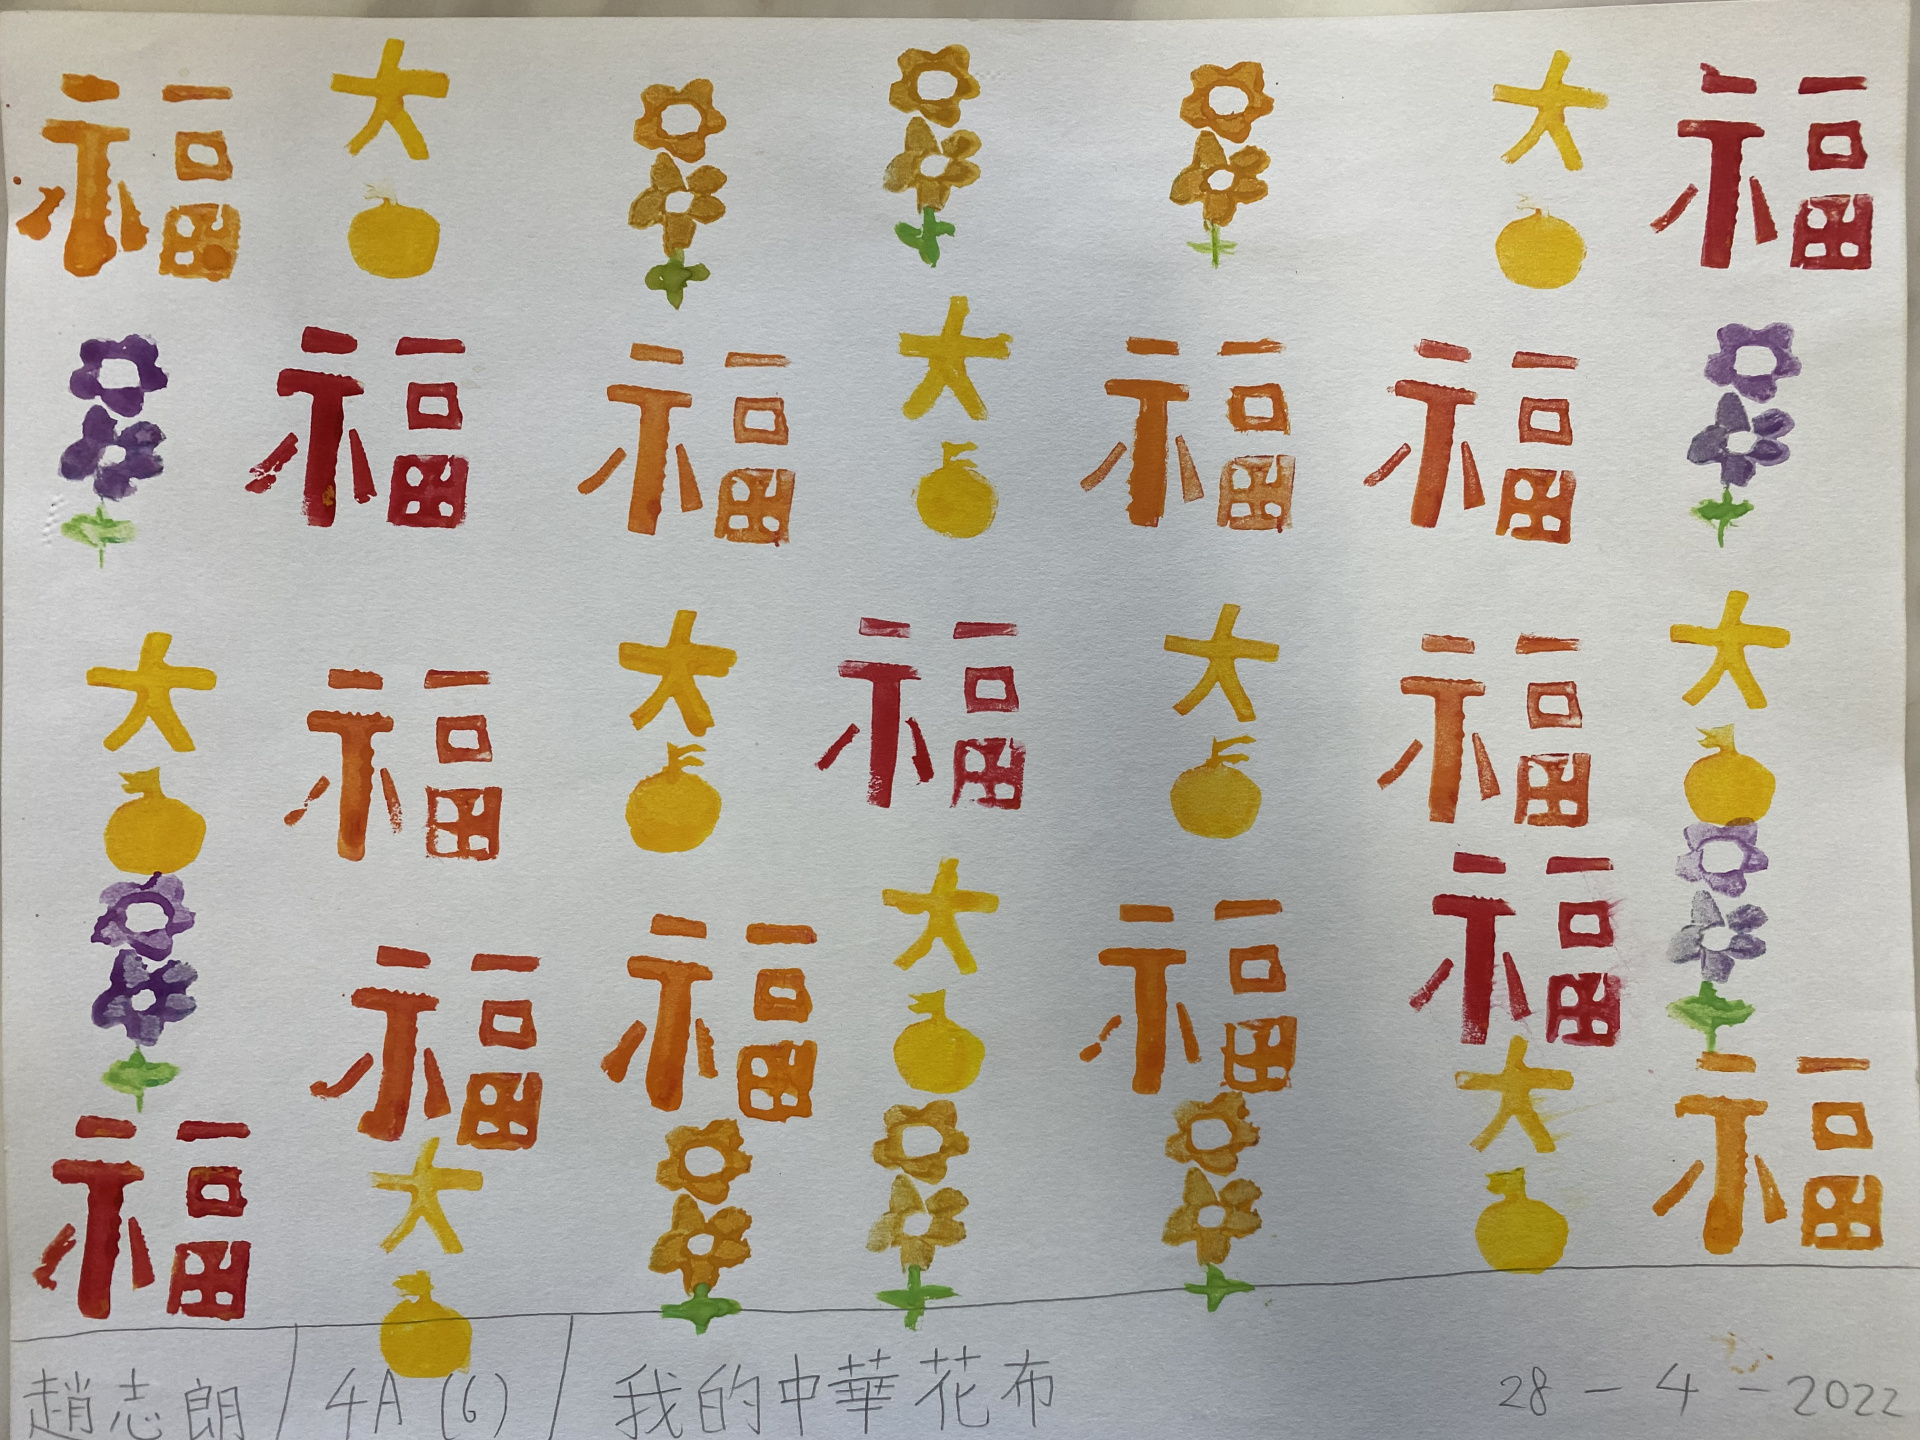 福 大 大 福
福 福 大 福 福
大 福 大 福 大 福 大
福 福 大 福 福
福 大 大 福
趙志朗 / 4A (6) / 我的中華花布 28-4-2022